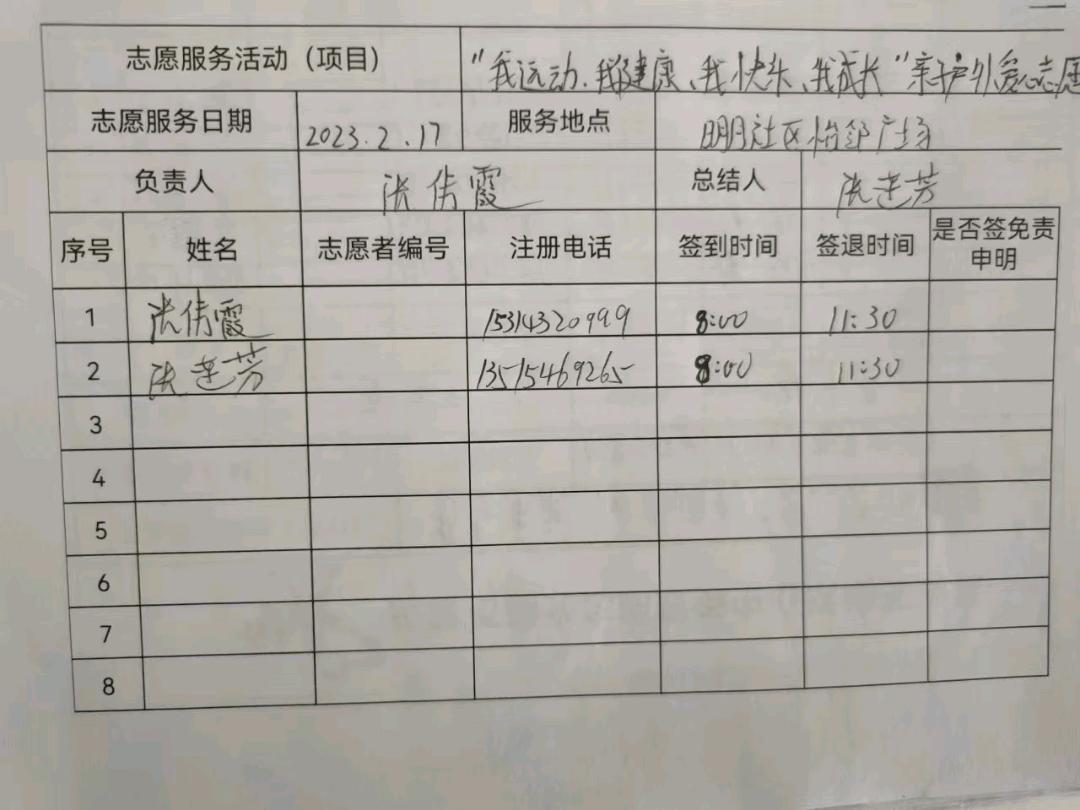 志愿服务活动（项目） "我运动、我健康、我快乐、我成长"亲子户外爱心志愿
志愿服务日期 2023.2.17 服务地点 明月社区怡邻广场
负责人 张倩霞 总结人 张莲芳
序号 姓名 志愿者编号 注册电话 签到时间 签退时间 是否签免责申明
1 张倩霞 15314320999 8:00 11:30
2 张莲芳 13515469265 8:00 11:30
3
4
5
6
7
8